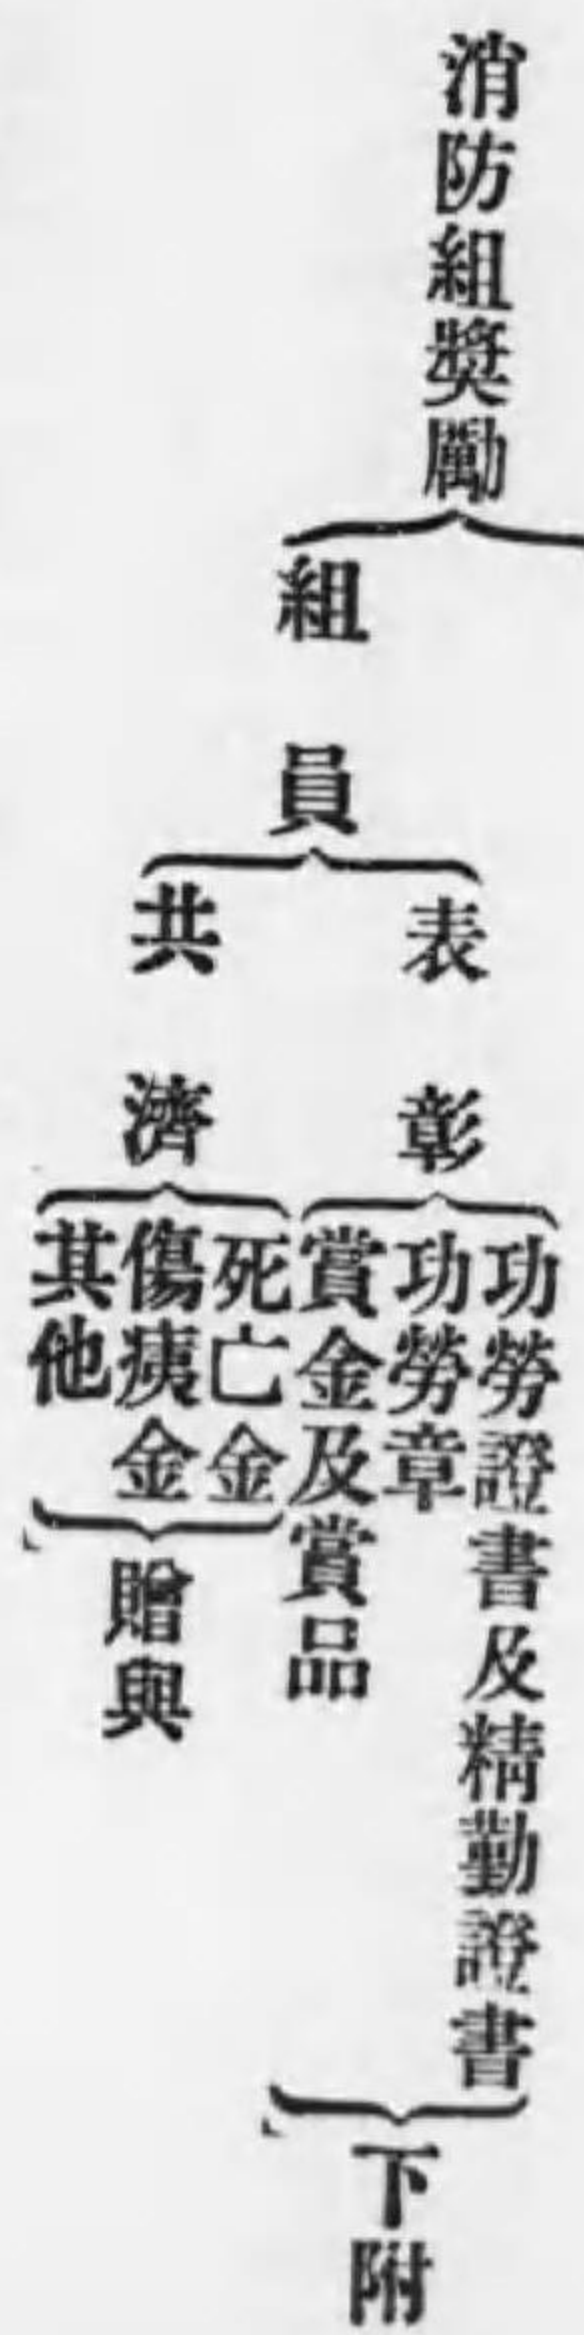 消防組獎勵
組員
表彰
功勞證書及精勤證書
功勞章
賞金及賞品
下附
共濟
死亡金
傷痍金
其他
贈與